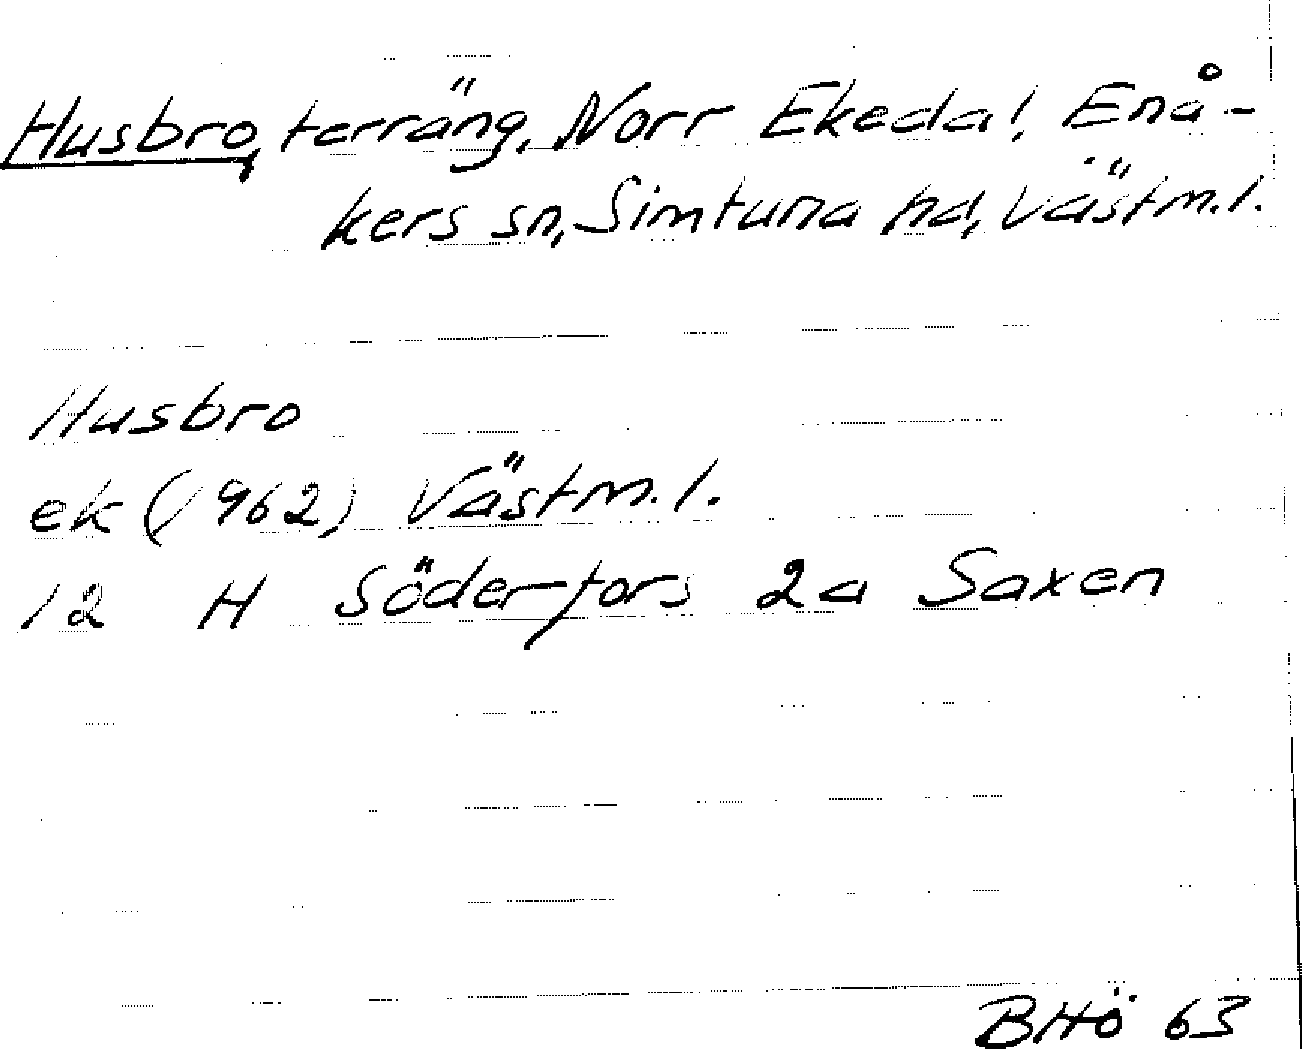 Husbro, terräng, Norr Ekedal, Enå-
kers sn, Simtuna hd, Västm.l.
Husbro
ek (1962) Västm.l.
12 H Söderfors 2a Saxen
BHö 63